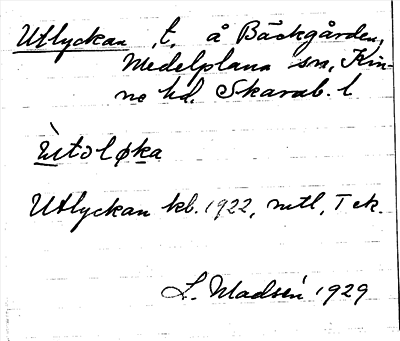 Utlyckan, t, å Bäckgården,
Medelplana sn, Kin-
ne hd, Skarab. l
ùtəløka
Utlyckan kb. 1922, mtl, T ek.
L. Madsén 1929